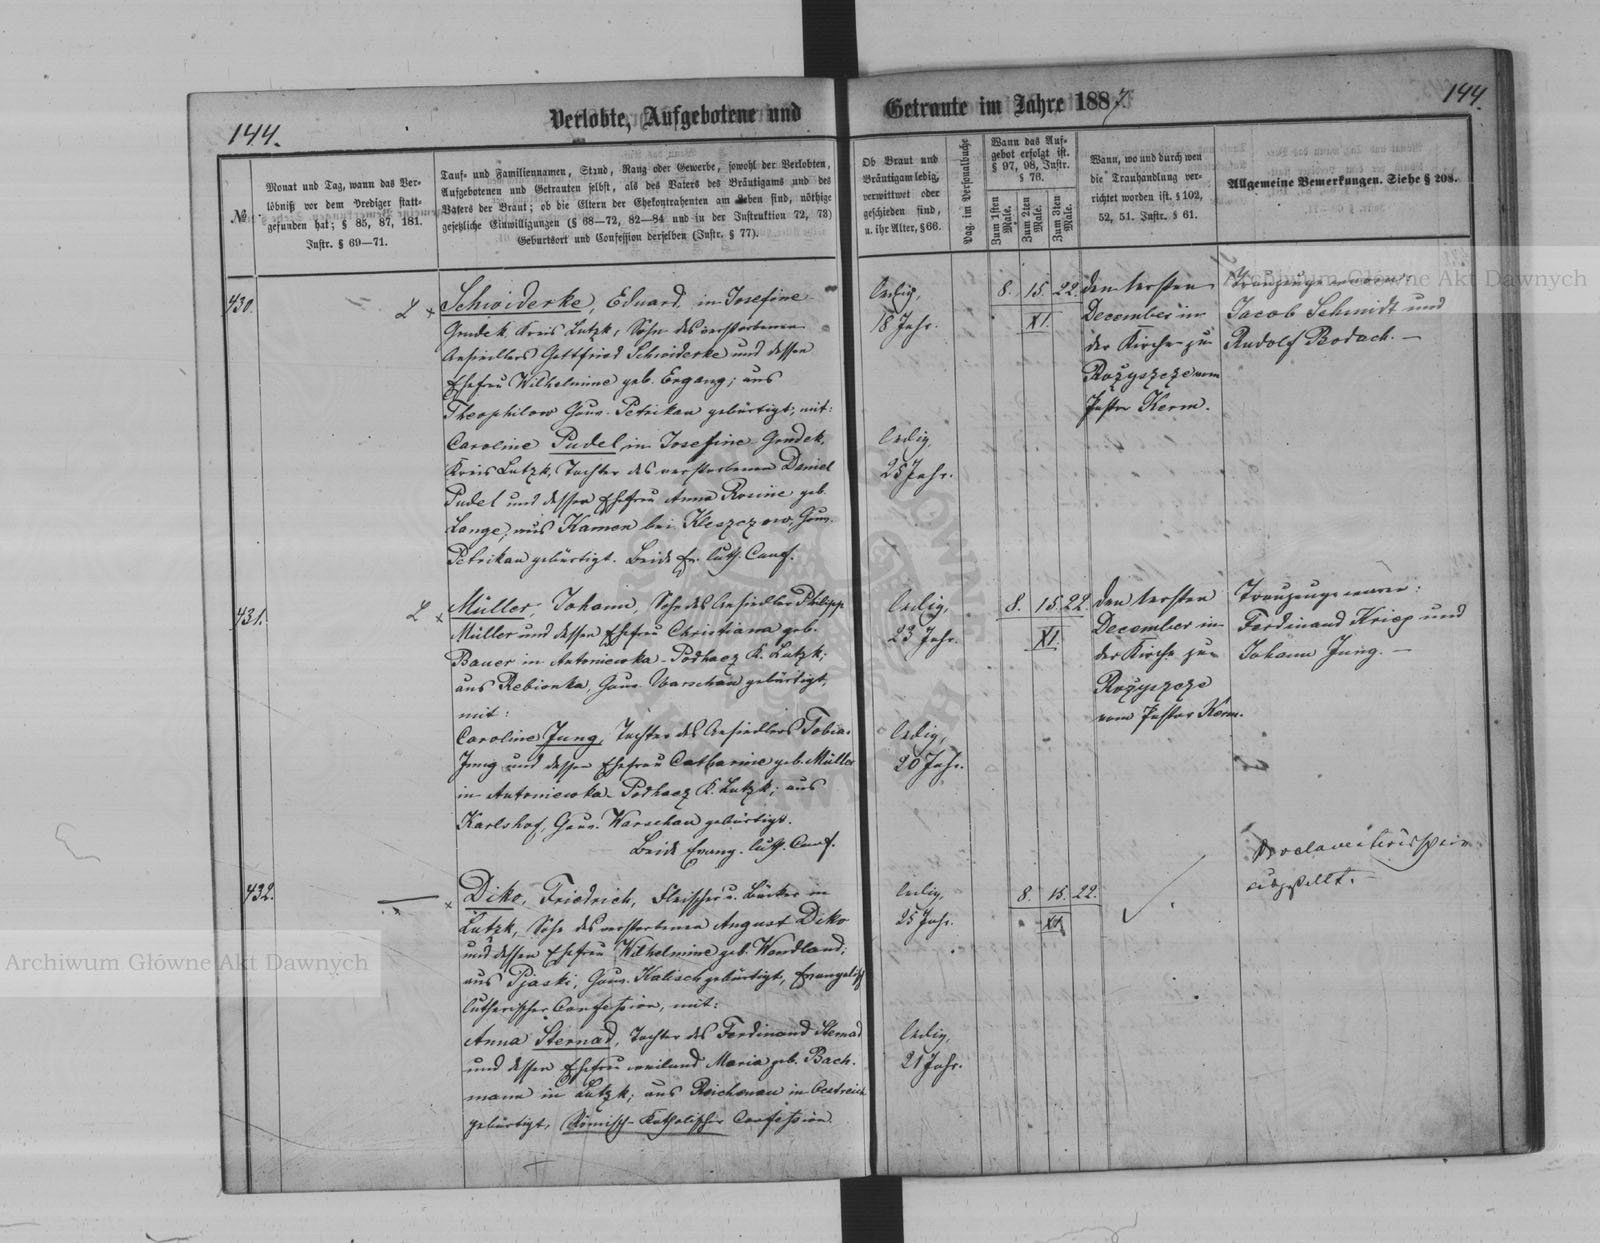 144.
Verlobte, Aufgebotene und
Getraute im Jahre 1887.
144.
№
Monat und Tag, wann das Ver-
löbniß vor dem Prediger statt-
gefunden hat; § 85, 87, 181.
Instr. § 69—71.
Tauf- und Familiennamen, Stand, Rang oder Gewerbe, sowohl der Verlobten,
Aufgebotenen und Getrauten selbst, als des Vaters des Bräutigams und des
Vaters der Braut; ob die Eltern der Ehekontrahenten am Leben sind, nöthige
gesetzliche Einwilligungen (§ 68—72, 82—84 und in der Instruktion 72, 73)
Geburtsort und Confession derselben (Instr. § 77).
Ob Braut und
Bräutigam ledig,
verwittwet oder
geschieden sind,
u. ihr Alter, § 66.
Pag. im Personalbuche
Wann das Auf-
gebot erfolgt ist.
§ 97, 98, Instr.
§ 76.
Zum 1sten Male.
Zum 2ten Male.
Zum 3ten Male.
Wann, wo und durch wen
die Trauhandlung ver-
richtet worden ist. § 102,
52, 51. Instr. § 61.
Allgemeine Bemerkungen. Siehe § 208.
430.
L x
Schwiderke, Eduard in Josefine-
Grudek Kreis Lutzk, Sohn des verstorbenen
Ansiedlers Gottfried Schwiderke und dessen
Ehefrau Wilhelmine geb. Ergang; aus
Theophilow Gouv. Petrikau gebürtigt, mit:
Caroline Pudel in Josefine-Grudek,
Kreis Lutzk, Tochter des verstorbenen Daniel
Pudel und dessen Ehefrau Anna Rosine geb.
Lange; aus Kamen bei Kleszczow, Gouv.
Petrikau gebürtigt. Beide Ev. luth. Conf.
ledig,
18 Jahr.
ledig,
25 Jahr.
8. 15. 22.
XI.
den ersten
December in
der Kirche zu
Rożyszcze vom
Pastor Kerm.
Trauzeugen waren:
Jacob Schmidt und
Rudolf Bodach. —
431.
L x
Müller Johann, Sohn des Ansiedlers Philipp
Müller und dessen Ehefrau Christiana geb.
Bauer in Antoniewka-Podhaez K. Lutzk;
aus Rebionka, Gouv. Warschau gebürtigt,
mit:
Caroline Jung, Tochter des Ansiedlers Tobias
Jung und dessen Ehefrau Catharine geb. Müller
in Antoniewka-Podhaez K. Lutzk; aus
Karlshof, Gouv. Warschau gebürtigt.
Beide Evang. luth. Conf.
ledig,
23 Jahr.
ledig,
20 Jahr.
8. 15. 22.
XI.
den ersten
December in
der Kirche zu
Rożyszcze
vom Pastor Kerm.
Trauzeugen waren:
Ferdinand Krieg und
Johann Jung. —
432.
x
Diko, Friedrich, Fleischer u. Bäcker in
Lutzk, Sohn des verstorbenen August Diko
und dessen Ehefrau Wilhelmine geb. Wendland;
aus Pjaski, Gouv. Kalisch gebürtigt, Evangelisch
lutherischer Confession, mit:
Anna Sternad, Tochter des Ferdinand Sternad
und dessen Ehefrau weiland Maria geb. Bach-
mann in Lutzk; aus Reichenau in Oestreich
gebürtigt, Römisch-Katholischer Confession.
ledig,
25 Jahr.
ledig,
21 Jahr.
8. 15. 22.
XI.
Proclamationsschein
ausgestellt.
Archiwum Główne Akt Dawnych
Archiwum Główne Akt Dawnych